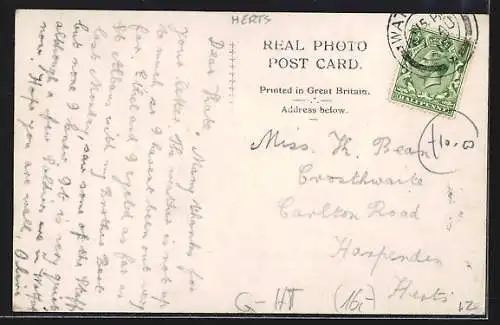 HERTS
REAL PHOTO
POST CARD.
Printed in Great Britain.
Address below.
HALFPENNY
Miss K. Bean
Crosthwaite
Carlton Road
Harpenden
Herts
Dear
Many thanks for
your letter. The weather is not up
to much, so I havent been out very
far. Ethel and I cycled as far as
St Albans with my Brother Bert
last Monday, saw some of the Staff
but none I knew. It is very quiet
although a few Soldiers are in
now. Hope you are well,
G - HT
(16/-)